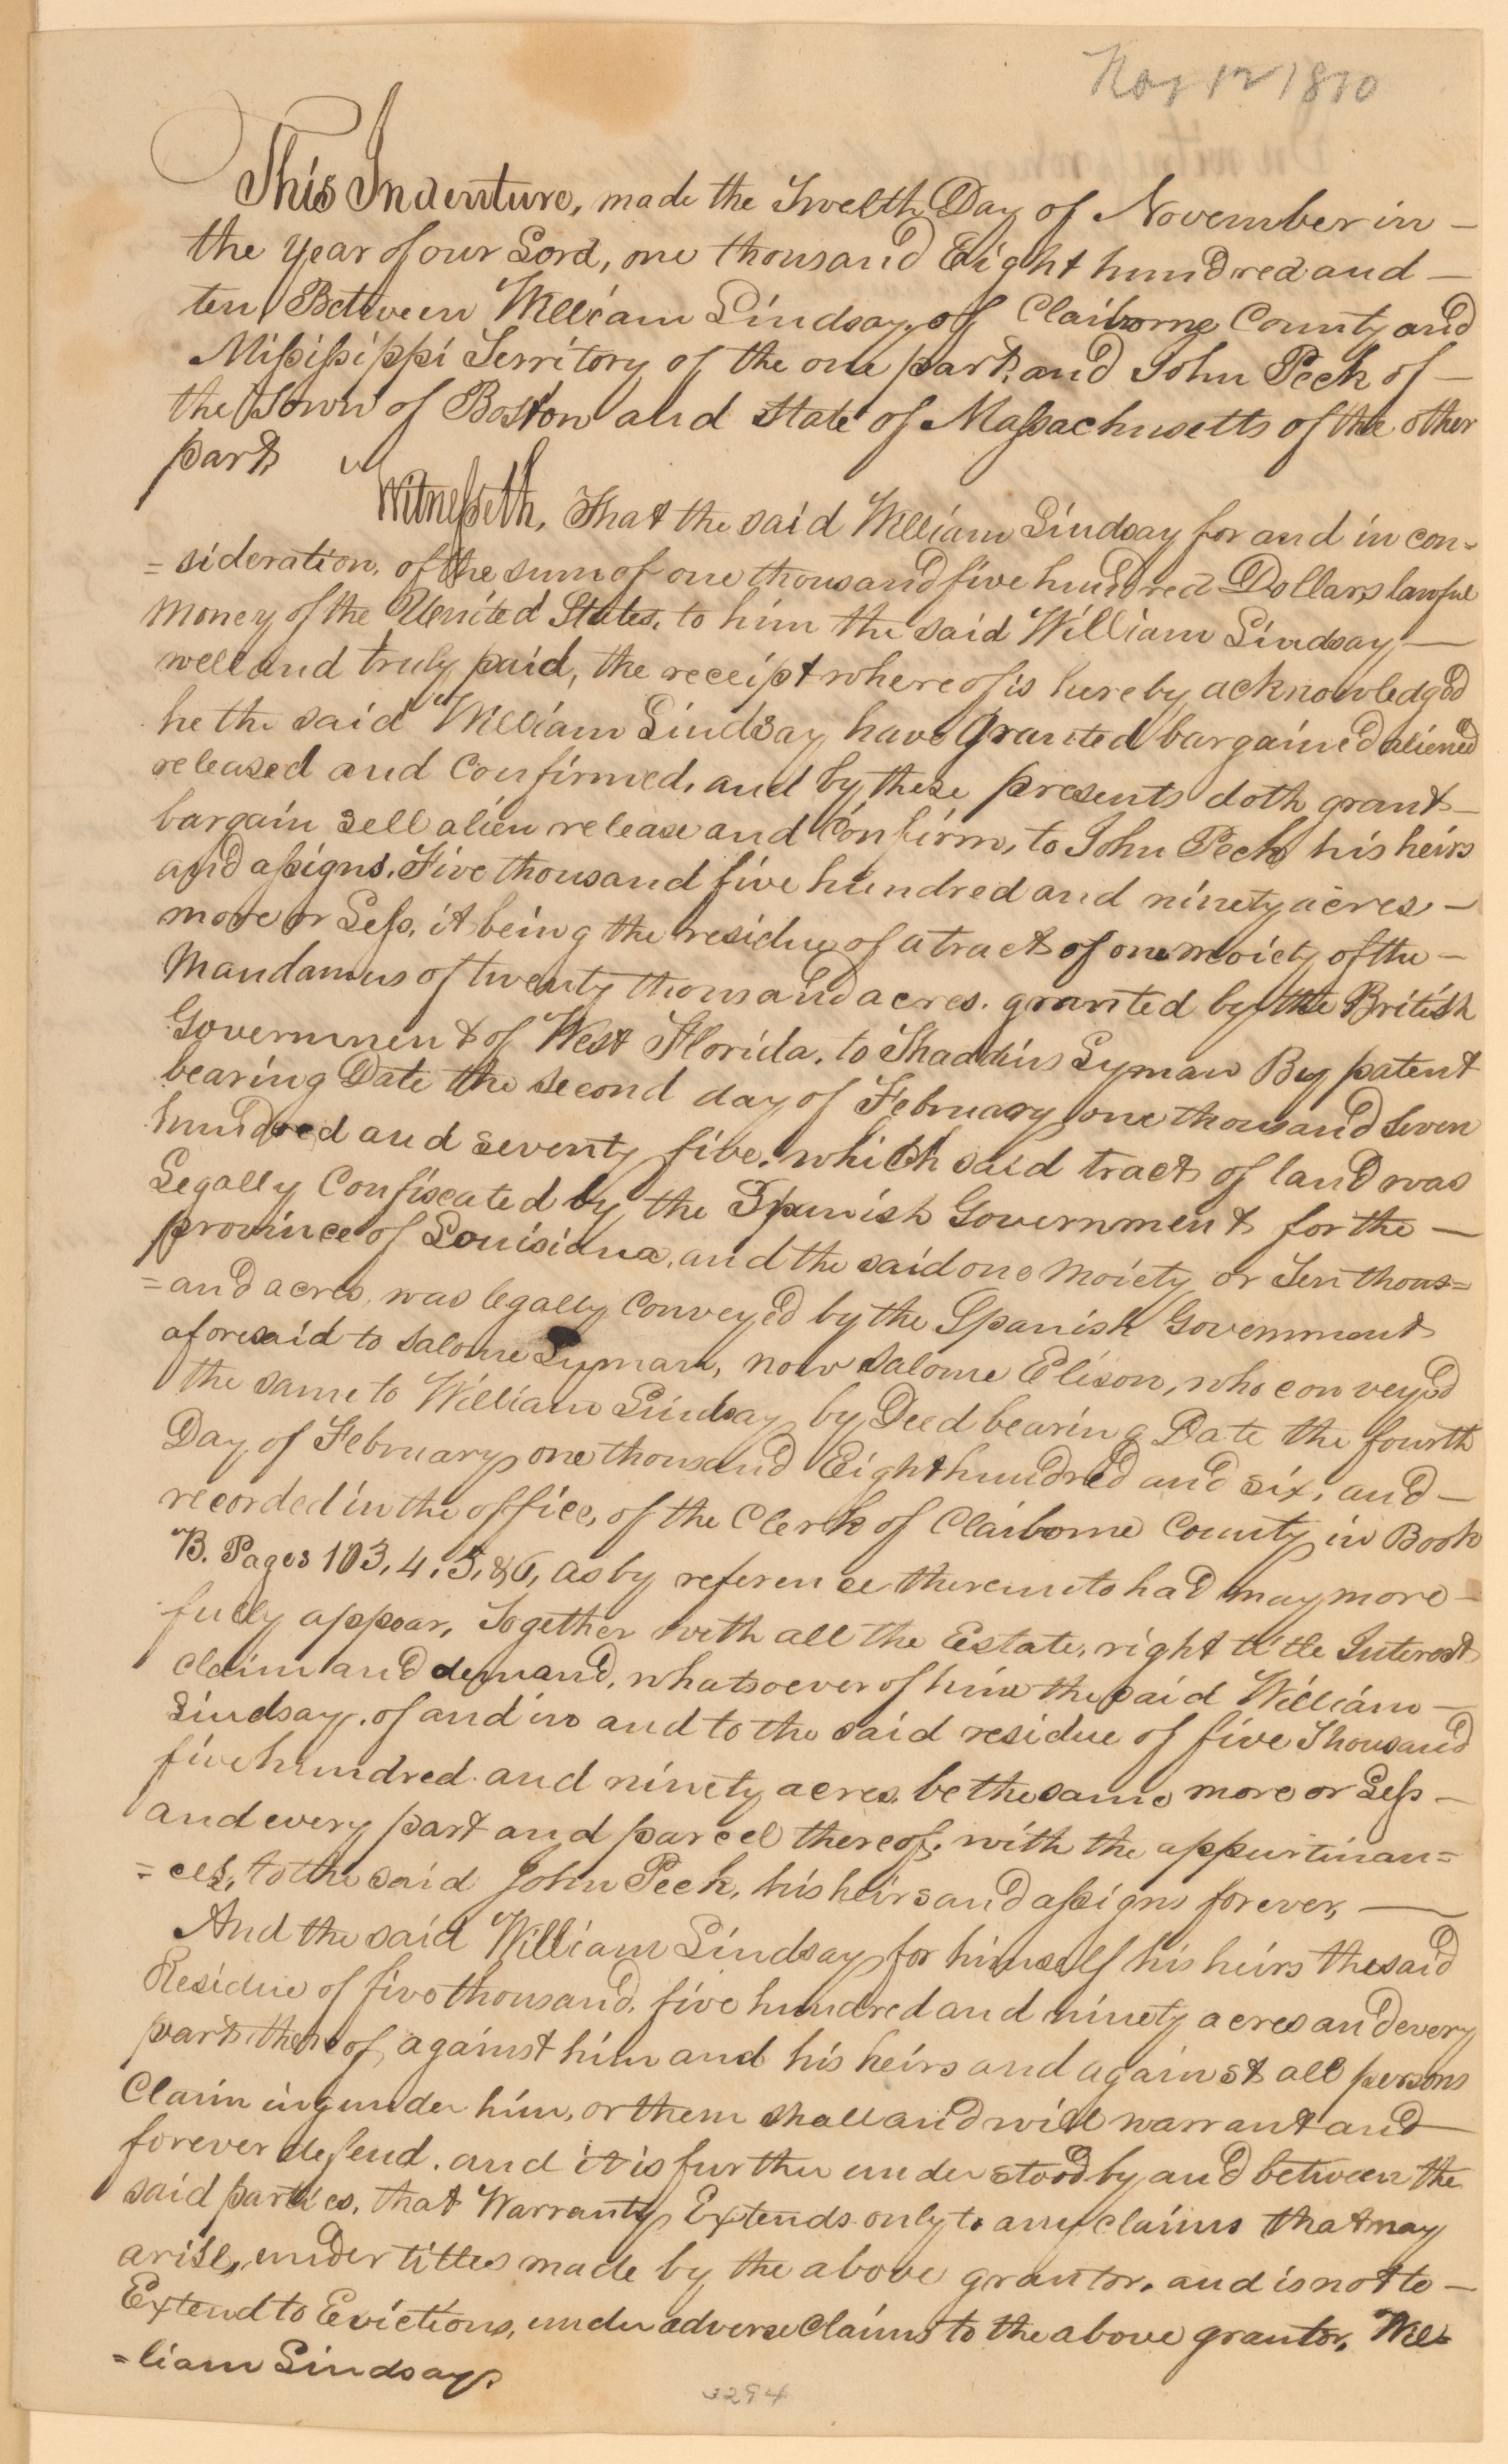 Nov 12 1810
This Indenture, made the Twelth Day of November in —
the Year of our Lord, one thousand Eight hundred and —
ten, Between William Lindsay, of Claiborne County and
Missisippi Territory of the one part, and John Peck of —
the Town of Boston and State of Massachusetts of the other
part,
Witnesseth, That the said William Lindsay for and in con=
=sideration, of the sum of one thousand five hundred Dollars lawful
Money of the United States, to him the said William Lindsay —
well and truly paid, the receipt whereof is hereby acknowledged
he the said William Lindsay have Granted bargained aliened
released and Confirmed, and by these presents doth grant —
bargain sell alien release and Confirm, to John Peck his heirs
and assigns. Five thousand five hundred and ninety acres —
more or Less, it being the residue of a tract of one moiety of the —
Mandamus of twenty thousand acres. granted by the British
Government of West Florida, to Thaddius Lyman By patent
bearing Date the second day of February one thousand Seven
hundred and seventy five, which said tract of land was
Legally Confiscated by the Spanish Government for the —
province of Louisiana, and the said one Moiety or Ten thous=
=and acres, was legally Conveyed by the Spanish Government
aforesaid to Salome Lyman, now Salome Elison, who conveyed
the same to William Lindsay by Deed bearing Date the fourth
Day of February one thousand Eight hundred and six, and —
recorded in the office, of the Clerk of Claiborne County in Book
B. Pages 103, 4, 5, & 6, as by reference thereunto had may more —
fully appear, Together with all the Estate, right title Interest
Claim and demand, whatsoever of him the said William —
Lindsay, of and in and to the said residue of five Thousand
five hundred and ninety acres, be the same more or Less —
and every part and parcel thereof, with the appurtinan=
=ces, to the said John Peck, his heirs and assigns forever, —
And the said William Lindsay for himself his heirs the said
Residue of five thousand, five hundred and ninety acres and every
part thereof, against him and his heirs and against all persons
Claiming under him, or them shall and will warrant and —
forever defend. and it is further understood by and between the
said parties, that Warranty Extends only to any claims that may
arise, under titles made by the above grantor, and is not to —
Extend to Evictions, under adverse Claims to the above grantor, Wil=
=liam Lindsay.
3294